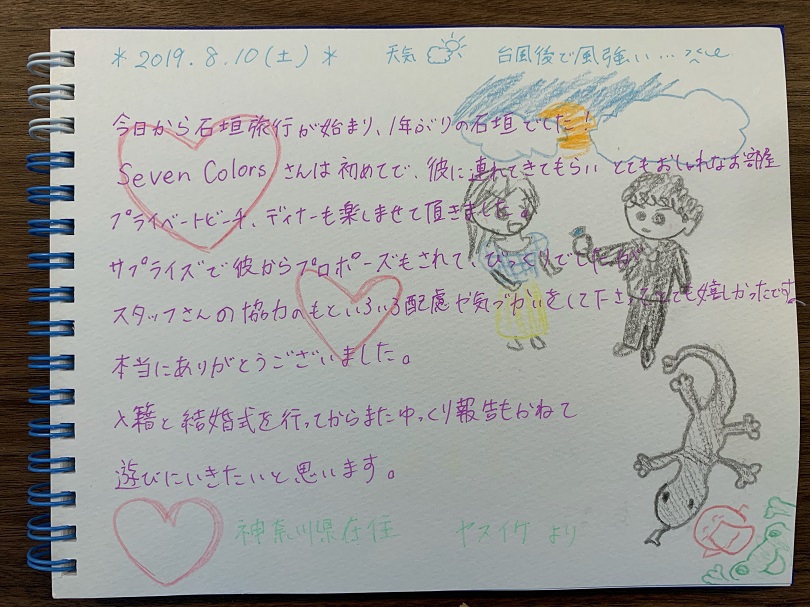 *2019.8.10(土)* 天気 台風後で風強い…
今日から石垣旅行が始まり、1年ぶりの石垣でした!
Seven Colorsさんは初めてで、彼に連れてきてもらい とてもおしゃれなお部屋
プライベートビーチ、ディナーも楽しませて頂きました。
サプライズで彼からプロポーズもされて、びっくりでしたが
スタッフさんの協力のもといろいろ配慮や気づかいをして下さってとても嬉しかったです。
本当にありがとうございました。
入籍と結婚式を行ってからまたゆっくり報告もかねて
遊びにいきたいと思います。
神奈川県在住 ヤスイケより